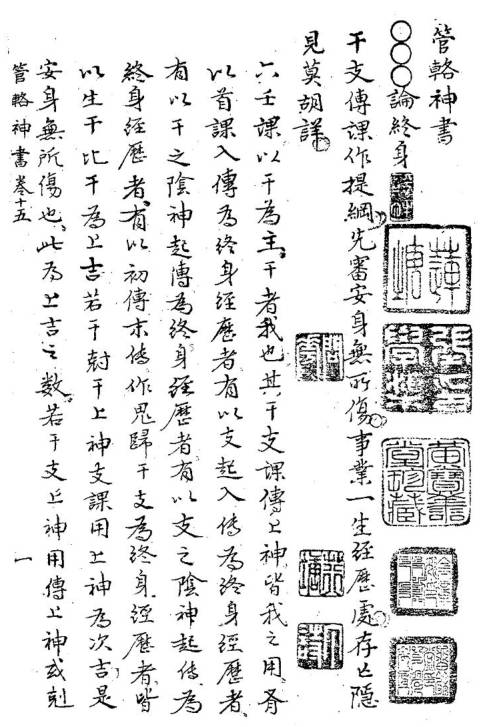 管輅神書
○○○論終身
干支傳課作提綱先審安身無所傷事業一生經歷處存亡隱
見莫胡詳
六壬課以干為主干者我也其干支課傳上神皆我之用有
以首課入傳為終身經歷者有以支起入傳為終身經歷者
有以干之陰神起傳為終身經歷者有以支之陰神起傳為
終身經歷者有以初傳末傳作鬼歸干支為終身經歷者皆
以生干比干為上吉若干尅干上神支課用上神為次吉是
安身無所傷也此為上吉之數若干支上神用傳上神或刻
管輅神書卷十五
一